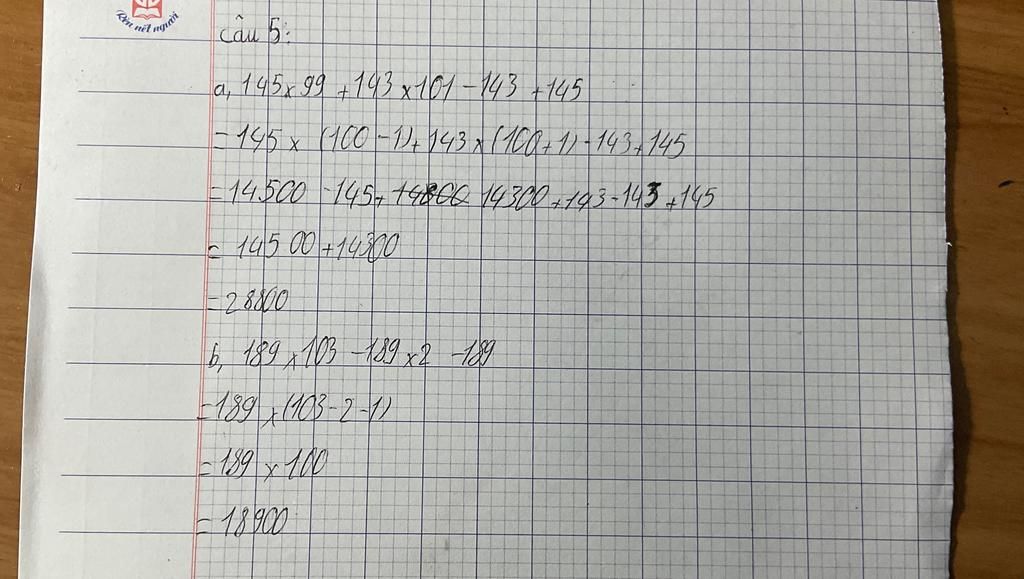 Rèn nét người
Câu 5:
a, 145 x 99 + 143 x 101 - 143 + 145
= 145 x (100 - 1) + 143 x (100 + 1) - 143 + 145
= 14500 - 145 + 14300 + 143 - 143 + 145
= 14500 + 14300
= 28800
b, 189 x 103 - 189 x 2 - 189
= 189 x (103 - 2 - 1)
= 189 x 100
= 18900